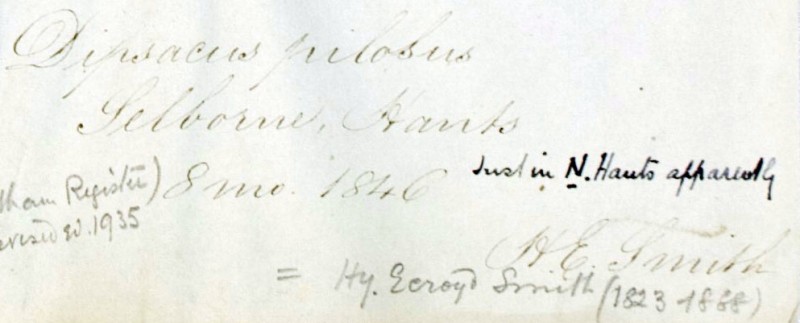 Dipsacus pilosus
Selborne, Hants
8 mo. 1846
Just in N. Hants apparently
Register)
ed. 1935
H.E. Smith
= Hy. Ecroyd Smith (1823-1888)